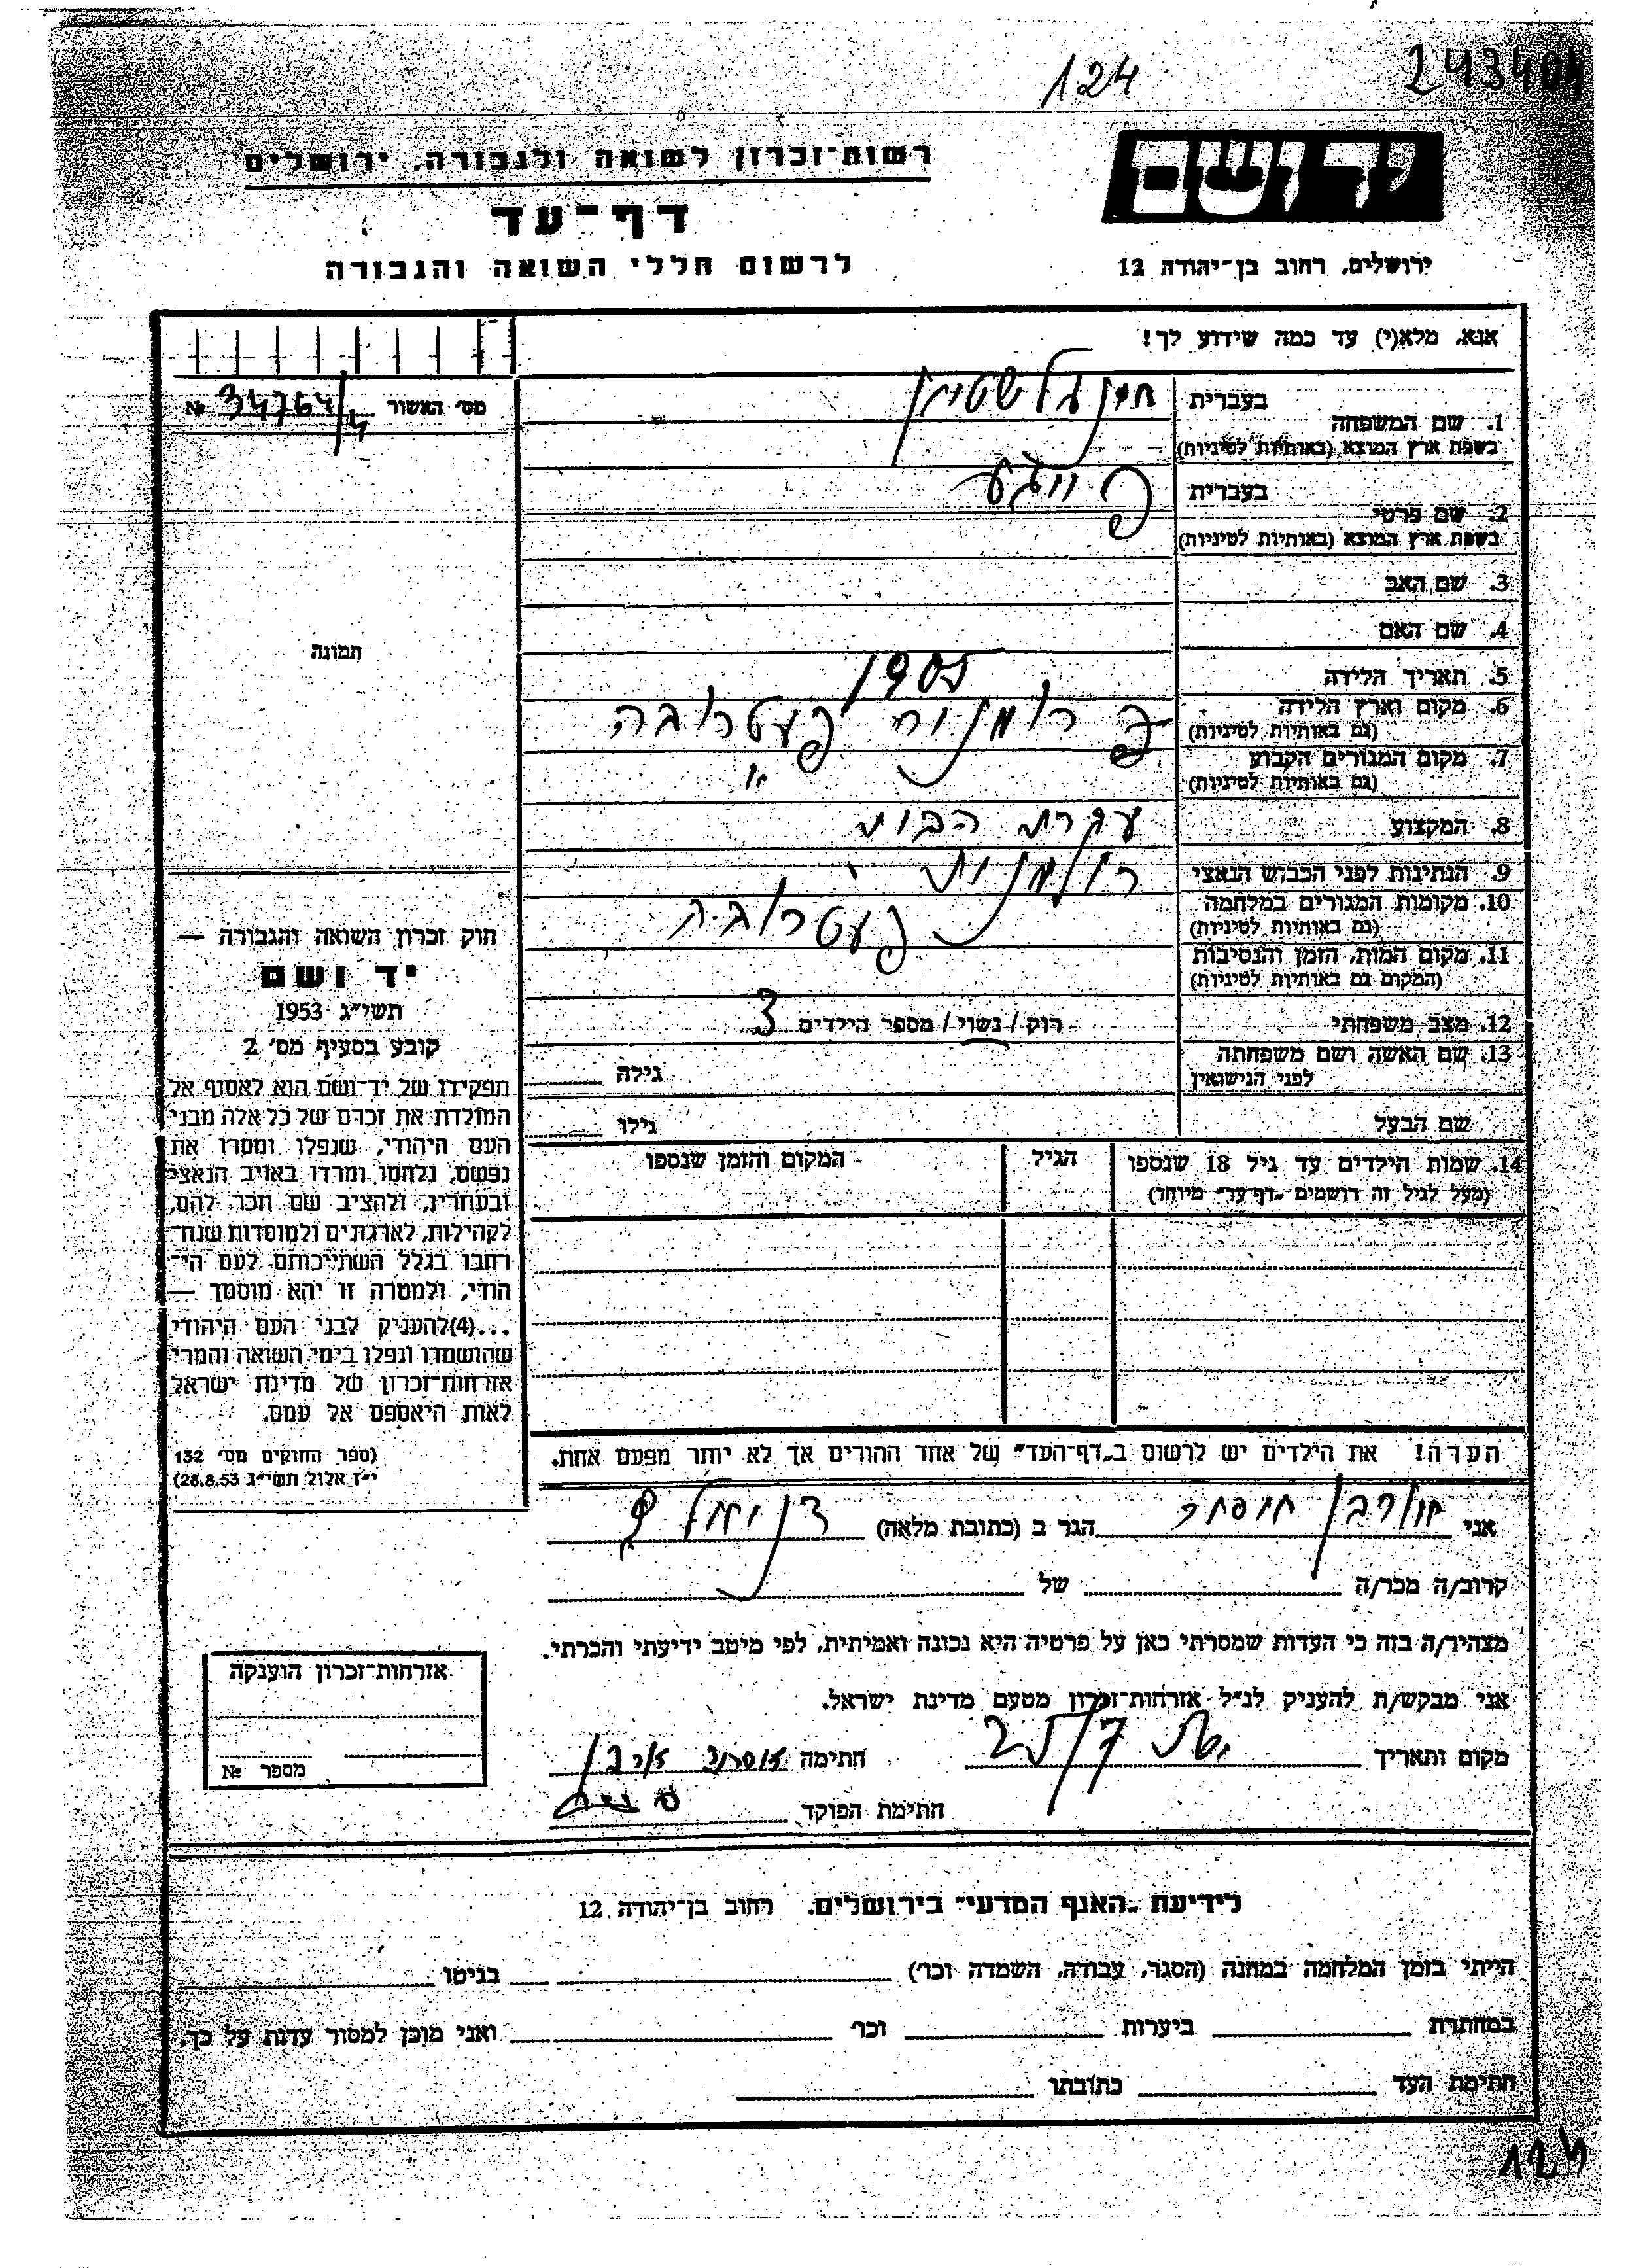 124
243404
יד ושם
רשות־זכרון לשואה ולגבורה, ירושלים
דף־עד
לרשום חללי השואה והגבורה
ירושלים, רחוב בן־יהודה 12
אנא, מלא(י) עד כמה שידוע לך!
מס׳ האשור 34764/4 №
1. שם המשפחה
בעברית
בשפת ארץ המוצא (באותיות לטיניות)
2. שם פרטי
בעברית פייגע
בשפת ארץ המוצא (באותיות לטיניות)
3. שם האב
4. שם האם
5. תאריך הלידה 1905
6. מקום וארץ הלידה רומניה פעטרובה
(גם באותיות לטיניות)
7. מקום המגורים הקבוע
(גם באותיות לטיניות)
8. המקצוע עקרת הבית
9. הנתינות לפני הכבוש הנאצי רומנית
10. מקומות המגורים במלחמה פעטרובה
(גם באותיות לטיניות)
11. מקום המות, הזמן והנסיבות
(המקום גם באותיות לטיניות)
12. מצב משפחתי רוק / נשוי / מספר הילדים 3
13. שם האשה ושם משפחתה
לפני הנישואין
גילה
שם הבעל
גילו
14. שמות הילדים עד גיל 18 שנספו
(מעל לגיל זה רושמים „דף־עד״ מיוחד)
הגיל
המקום והזמן שנספו
תמונה
חוק זכרון השואה והגבורה —
יד ושם
תשי״ג 1953
קובע בסעיף מס׳ 2
תפקידו של יד־ושם הוא לאסוף אל
המולדת את זכרם של כל אלה מבני
העם היהודי, שנפלו ומסרו את
נפשם, נלחמו ומרדו באויב הנאצי
ובעוזריו, ולהציב שם וזכר להם,
לקהילות, לארגונים ולמוסדות שנח־
רבו בגלל השתייכותם לעם הי־
הודי, ולמטרה זו יהא מוסמך —
...(4) להעניק לבני העם היהודי
שהושמדו ונפלו בימי השואה והמרי
אזרחות־זכרון של מדינת ישראל
לאות היאספם אל עמם.
(ספר החוקים מס׳ 132
י״ז אלול תשי״ג 28.8.53)
הערה! את הילדים יש לרשום ב„דף־העד״ של אחד ההורים אך לא יותר מפעם אחת.
אני הגר ב (כתובת מלאה) דניאל
קרוב/ה מכר/ה של
מצהיר/ה בזה כי העדות שמסרתי כאן על פרטיה היא נכונה ואמיתית, לפי מיטב ידיעתי והכרתי.
אני מבקש/ת להעניק לנ״ל אזרחות־זכרון מטעם מדינת ישראל.
מקום ותאריך חתימה
חתימת הפוקד
אזרחות־זכרון הוענקה
מספר №
לידיעת „האגף המדעי״ בירושלים, רחוב בן־יהודה 12
הייתי בזמן המלחמה במחנה (הסגר, עבודה, השמדה וכו׳) בגיטו
במחתרת ביערות וכו׳ ואני מוכן למסור עדות על כך.
חתימת העד כתובתו
124